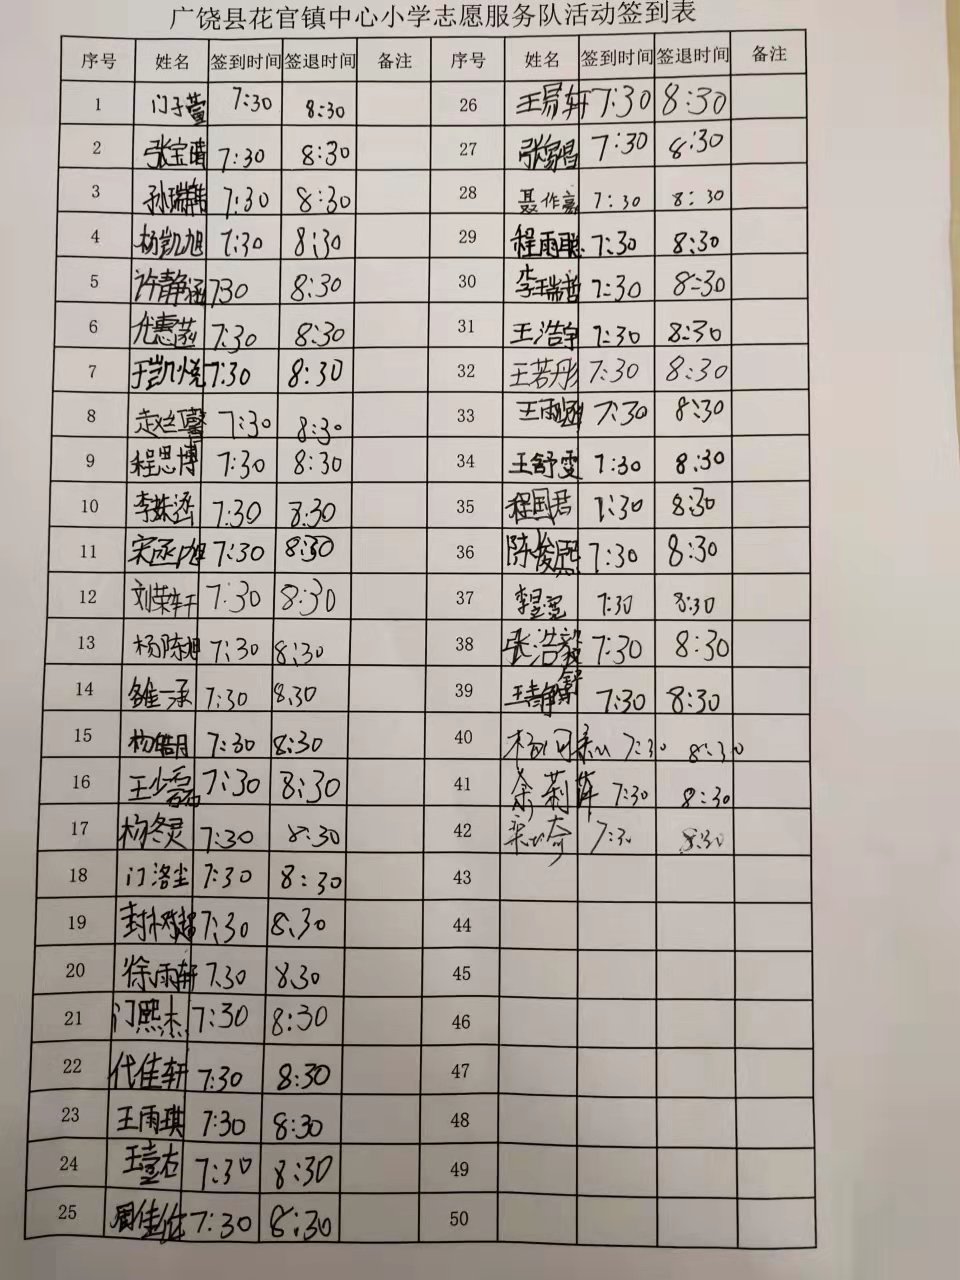 广饶县花官镇中心小学志愿服务队活动签到表
序号 姓名 签到时间 签退时间 备注 序号 姓名 签到时间 签退时间 备注
1 门子萱 7:30 8:30 26 王易轩 7:30 8:30
2 张宝晴 7:30 8:30 27 张家昌 7:30 8:30
3 孙瑞 7:30 8:30 28 聂作亮 7:30 8:30
4 杨凯旭 7:30 8:30 29 程雨聪 7:30 8:30
5 许静涵 730 8:30 30 李瑞哲 7:30 8:30
6 尤惠蕊 7:30 8:30 31 王浩宇 7:30 8:30
7 于凯悦 7:30 8:30 32 王若彤 7:30 8:30
8 赵红馨 7:30 8:30 33 王雨涵 7:30 8:30
9 程思博 7:30 8:30 34 王舒雯 7:30 8:30
10 李姝涵 7:30 8:30 35 程国君 7:30 8:30
11 宋丞旭 7:30 8:30 36 陈俊熙 7:30 8:30
12 刘荣轩 7:30 8:30 37 李 7:30 8:30
13 杨陈旭 7:30 8:30 38 张浩毅 7:30 8:30
14 雒一承 7:30 8:30 39 王静舒 7:30 8:30
15 杨皓月 7:30 8:30 40 杨 7:30 8:30
16 王少磊 7:30 8:30 41 余莉萍 7:30 8:30
17 杨冬灵 7:30 8:30 42 7:30 8:30
18 门洺尘 7:30 8:30 43
19 封树超 7:30 8:30 44
20 徐雨轩 7:30 8:30 45
21 门熙杰 7:30 8:30 46
22 代佳轩 7:30 8:30 47
23 王雨琪 7:30 8:30 48
24 王 7:30 8:30 49
25 周佳 7:30 8:30 50